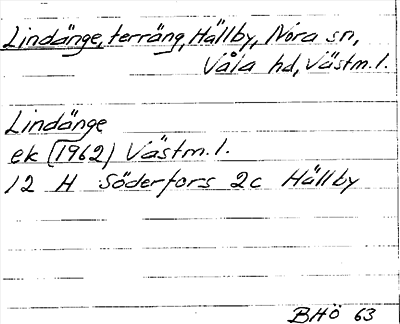 Lindänge, terräng, Hällby, Nora sn,
Våla hd, Västm. l.
Lindänge
ek (1962) Västm. l.
12 H Söderfors 2c Hällby
BHÖ 63